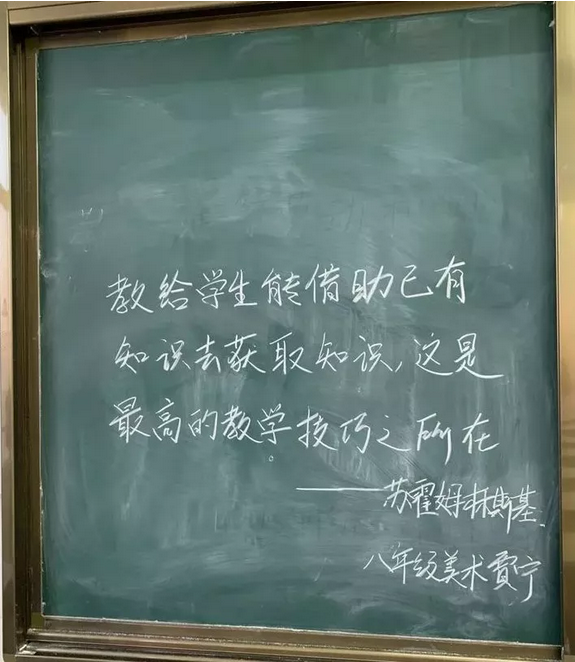 教给学生能借助已有
知识去获取知识,这是
最高的教学技巧之所在
——苏霍姆林斯基
八年级美术贾宁